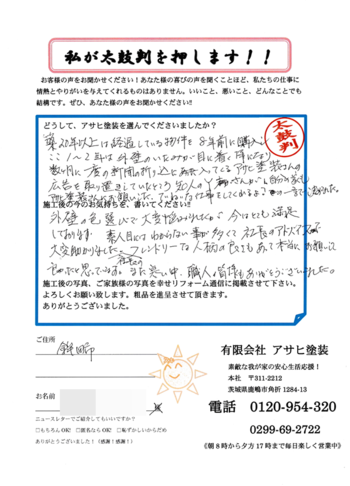 私が太鼓判を押します！！
お客様の声をお聞かせください！あなた様の喜びの声を聞くことほど、私たちの仕事に
情熱とやりがいを与えてくれるものはありません。いいこと、悪いこと、どんなことでも
結構です。ぜひ、あなた様の声をお聞かせください!!
太鼓判
どうして、アサヒ塗装を選んでくださいましたか？
築20年以上は経過している物件を8年前に購入し
ここ1～2年は外壁のいたみが目に着く様になり
数ヶ月に一度の新聞の折り込みに入ってくるアサヒ塗装さんの
広告を取り置きしていたところ知人の
施工後の今のお気持ちを、書いてください!!
外壁の色選びで大変悩みましたが今はとても満足
しております。素人目にはわからない事が多くて社長のアドバイスで
大変助かりました。フレンドリーな人柄の良さもあって本当にお願いして
良かったと思っています。また寒い中、職人の皆様もありがとうございました。
施工後の写真、ご家族様の写真を幸せリフォーム通信に掲載させて下さい。
よろしくお願い致します。粗品を進呈させて頂きます。
ありがとうございました。
ご住所
鉾田市
お名前
ニュースレターでご紹介してもいいですか？
□もちろんOK! □匿名ならOK! □恥ずかしいからだめ
ありがとうございました！（感謝！感謝！）
有限会社 アサヒ塗装
素敵な我が家の安心生活応援！
本社 〒311-2212
茨城県鹿嶋市角折 1284-13
電話 0120-954-320
0299-69-2722
《朝8時から夕方17時まで毎日楽しく営業中》